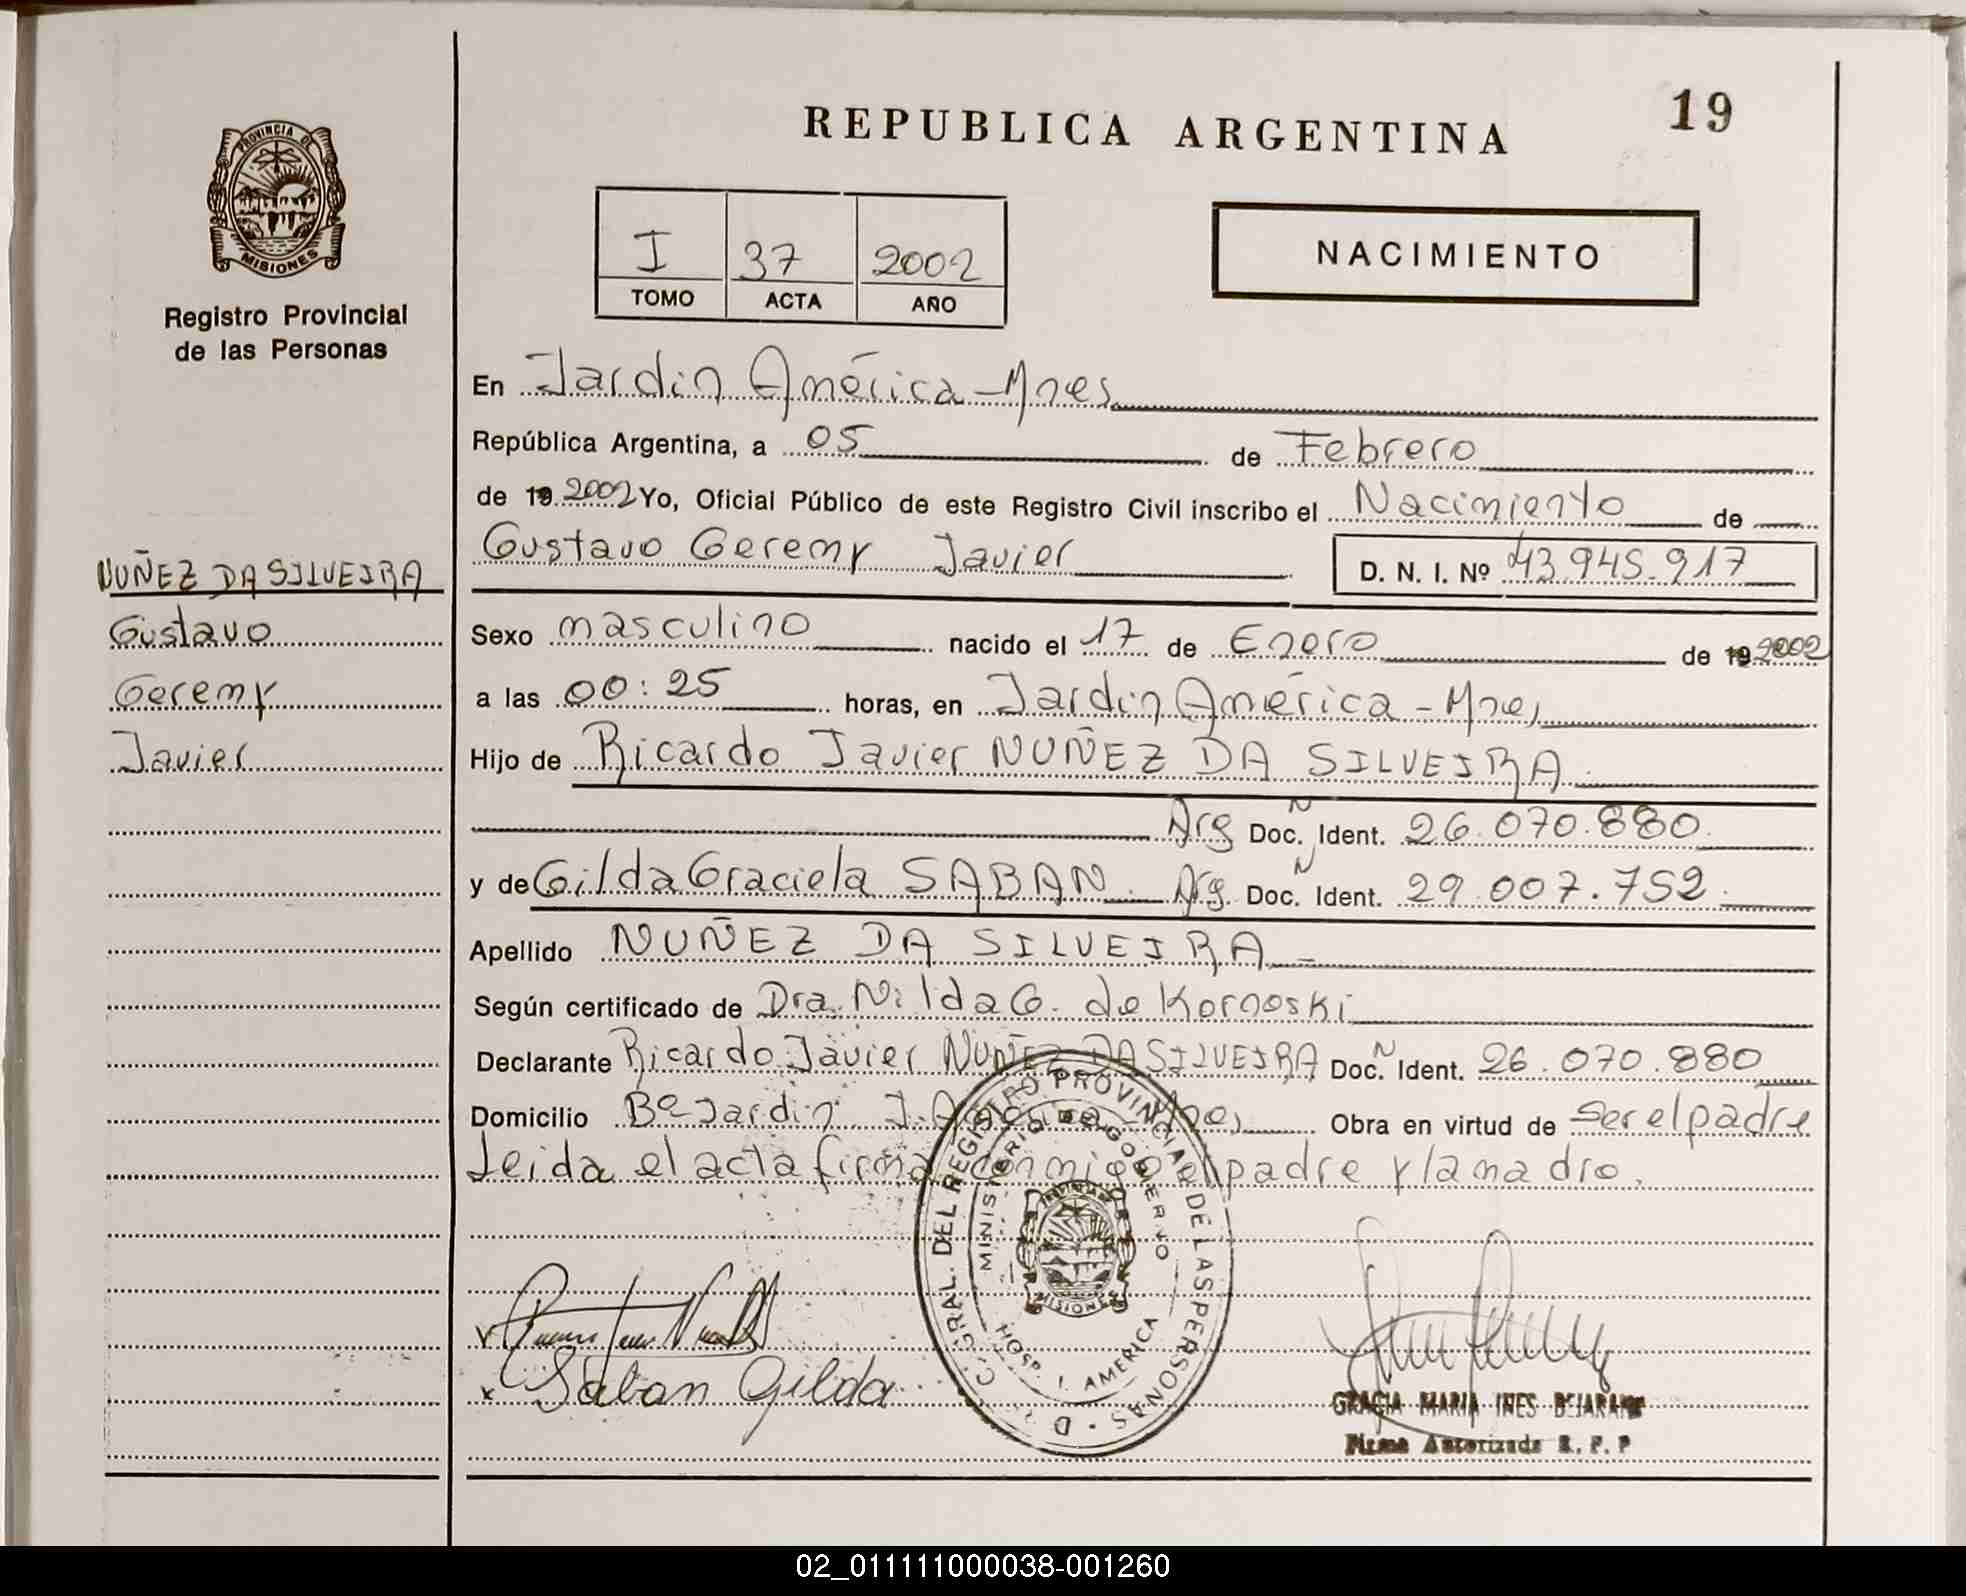 REPUBLICA ARGENTINA
19
PROVINCIA DE
MISIONES
Registro Provincial
de las Personas
I 37 2002
TOMO ACTA AÑO
NACIMIENTO
En Jardin América-Mnes
República Argentina, a 05 de Febrero
de 19 2002 Yo, Oficial Público de este Registro Civil inscribo el Nacimiento de
Gustavo Geremy Javier D. N. I. Nº 43.945.917
NUÑEZ DA SILVEIRA
Gustavo
Geremy
Javier
Sexo masculino nacido el 17 de Enero de 19 2002
a las 00:25 horas, en Jardin América - Mnes
Hijo de Ricardo Javier NUÑEZ DA SILVEIRA
Arg Doc. N Ident. 26.070.880.
y de Gilda Graciela SABAN. Arg. Doc. N Ident. 29.007.752.
Apellido NUÑEZ DA SILVEIRA
Según certificado de Dra. Nilda G. de Kornoski
Declarante Ricardo Javier NUÑEZ DA SILVEIRA Doc. N Ident. 26.070.880
Domicilio Bº Jardin J. America Mnes Obra en virtud de ser el padre
Leida el acta firma conmigo el padre y la madre.
C. GRAL. DEL REGISTRO PROVINCIAL DE LAS PERSONAS
MINISTERIO DE GOBIERNO
MISIONES
HOSP. J. AMERICA
Saban Gilda
GRACIA MARIA INES BEJARANO
Firma Autorizada R. P. P
02_011111000038-001260